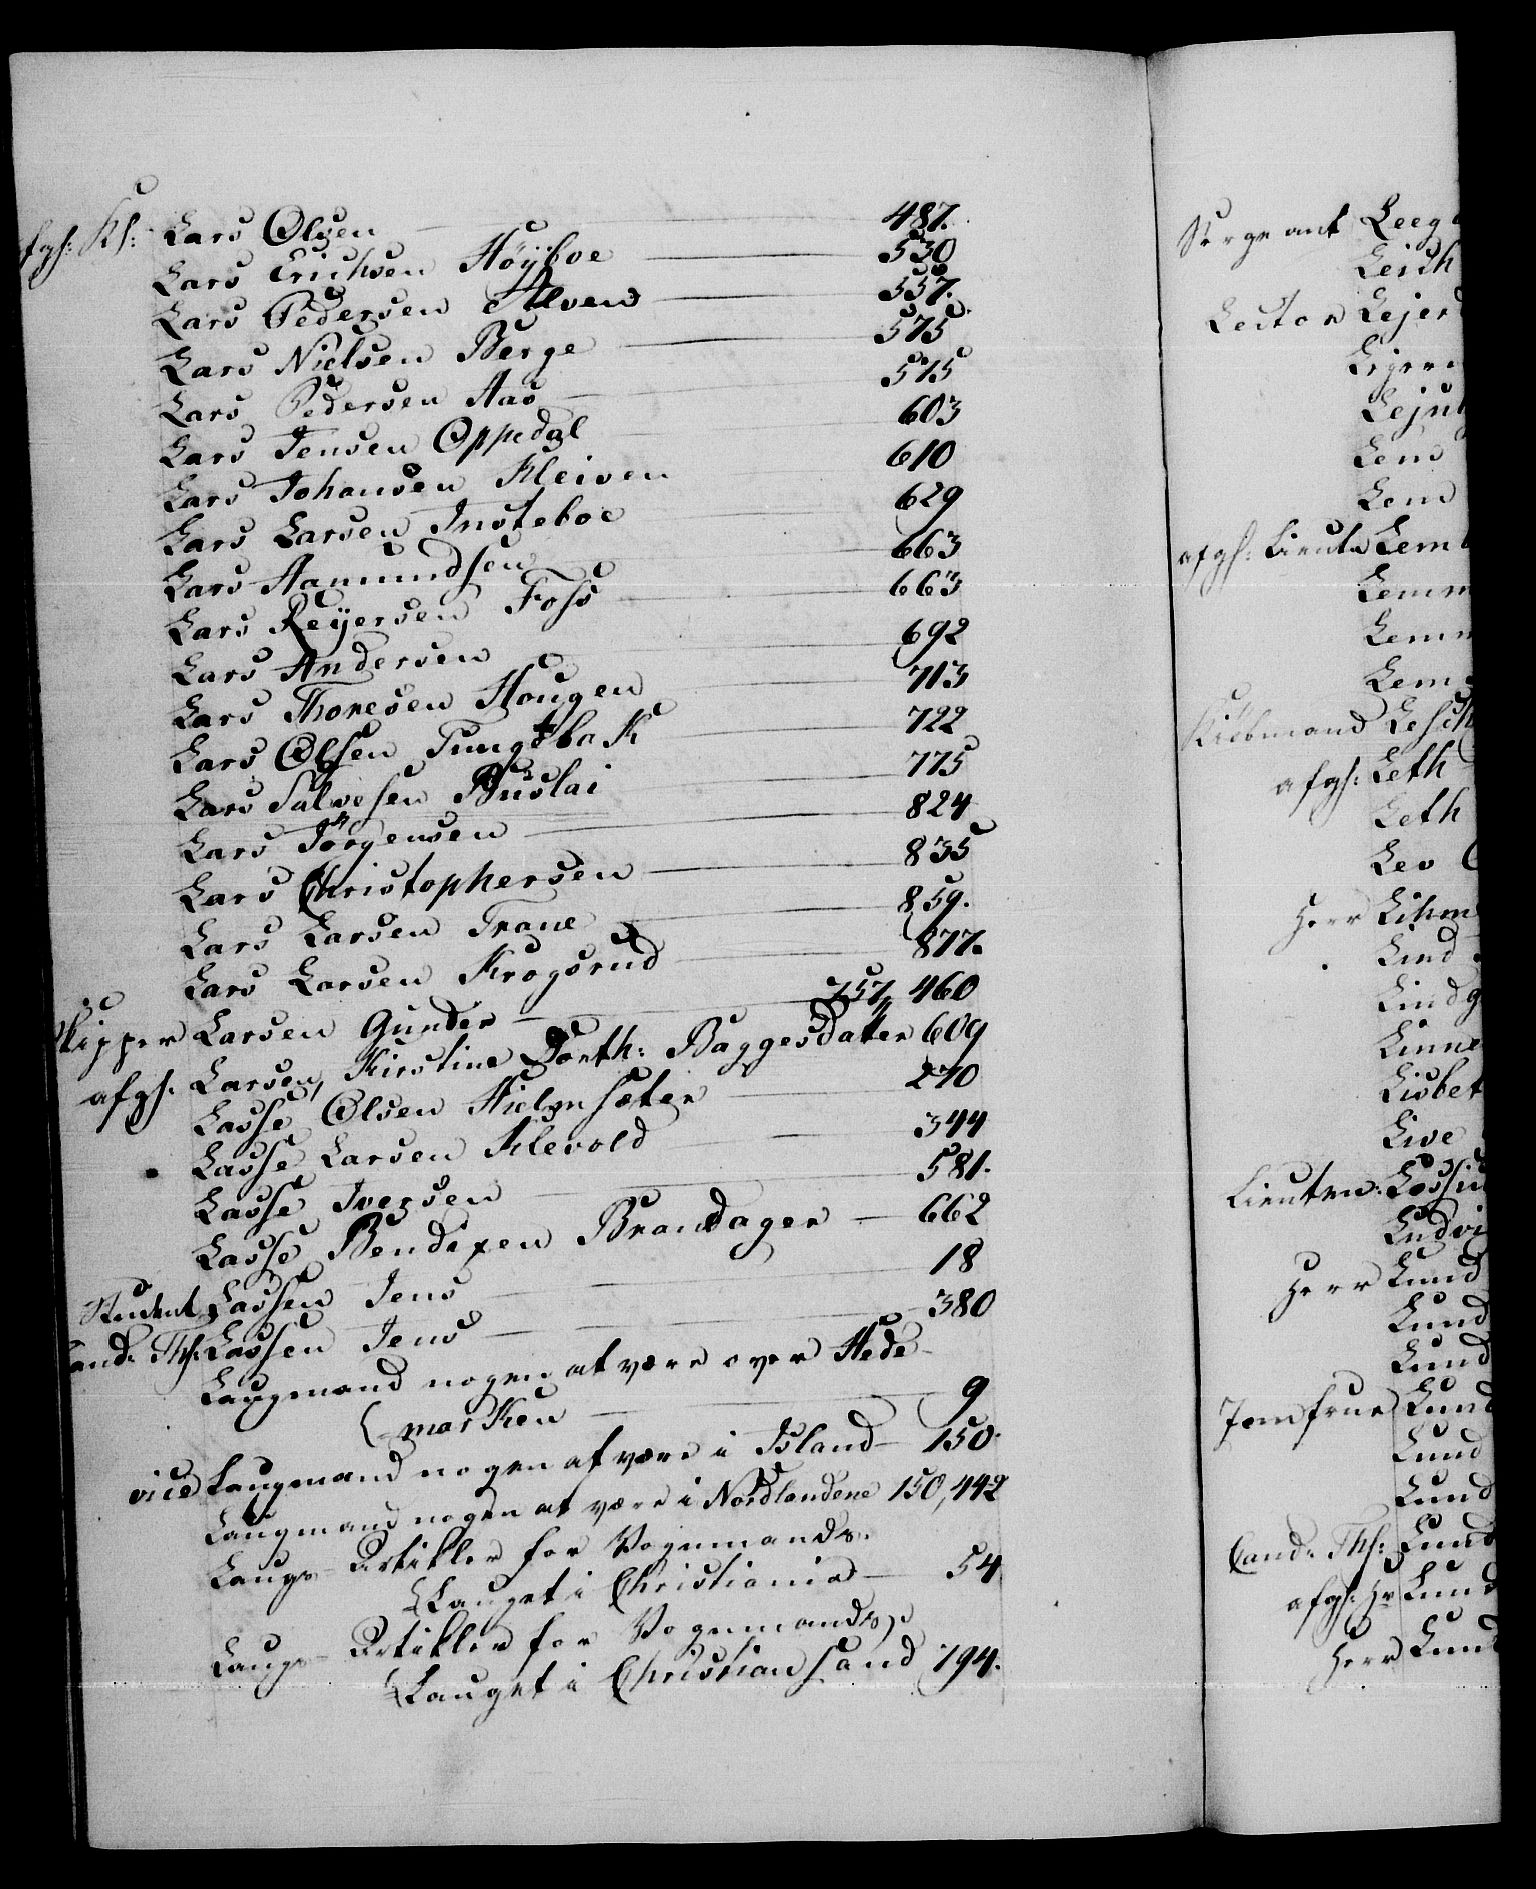 afgh: Kh: Lars Olsen 487.
Lars Erichsen Höÿboe 530
Lars Pedersen Alven 557.
Lars Nielsen Berge 575
Lars Pedersen Aas 575
Lars Jensen Oppedal 603
Lars Johansen Kleiven 610
Lars Larsen Insteboe 629
Lars Aamundsen 663
Lars Reÿersen Foss 663
Lars Andersen 692
Lars Thoresen Hougen 713
Lars Olsen Tungebak 722
Lars Salvesen Buslai 775
Lars Jörgensen 824
Lars Christophersen 835
Lars Larsen Trane 859.
Lars Larsen Krogsrud 877.
Skipper Larsen Gunder 757, 460
afgh. Larsen, Kirstine Dorth: Baggesdatter 609
Lasse Olsen 270
Lasse Larsen Klevold 344
Lasse Iversen 581.
Lasse Bendixen Brandager 662
Student Lassen Jens 18
Cand: Th: Lassen Jens 380
Laugmand nogen at være over Hede-
marken 9
vice Laugmand nogen at være i Island 150.
Laugmand nogen at være i Nordlandene 150, 442
Laugs-Artikler for Vognmands-
Lauget i Christiania 54
Laugs-Artikler for Vognmands-
Lauget i Christiansand 794.
Sergeant Leeg
Leich
Lector Lejer
Leju
Lem
Lem
afgh: Lieutn Lem
Lemm
Lemm
Lem
Kiöbmand Lesch
afgh: Leth
Leth
Lev
Herr Lihm
Lind
Lindg
Linne
Lisbet
Live
Lieutn: Lossiu
Ludvi
Herr Lund
Lund
Lund
Jomfrue Lund
Lund
Lund
Cand: Th: Lund
afgh: Hr Lund
Herr Lund